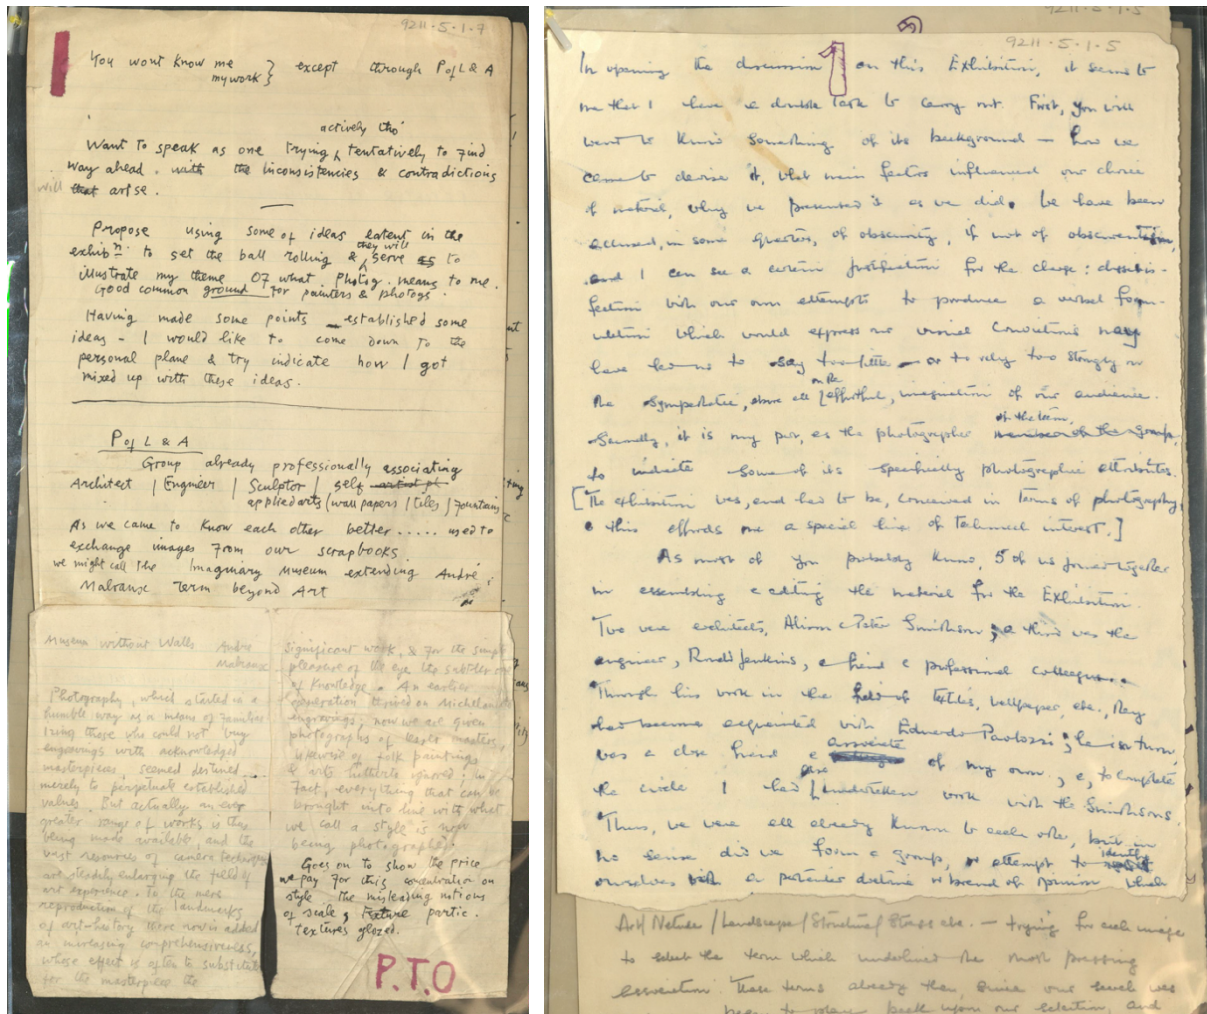 9211-5-1-7
You wont know me
my work } except through P of L & A
actively tho'
Want to speak as one trying tentatively to find
way ahead. with the inconsistencies & contradictions
will that arise.
Propose using some of ideas latent in the
exhibn. to set the ball rolling & they will serve as to
illustrate my theme of what photog. means to me.
Good common ground for painters & photogs.
Having made some points established some
ideas - I would like to come down to the
personal plane & try indicate how I got
mixed up with these ideas.
P of L & A
Group already professionally associating
Architect / Engineer / Sculptor / self artist pt
applied arts / wall papers / tiles / fountains
As we came to know each other better ..... used to
exchange images from our scrapbooks.
we might call the Imaginary Museum extending André
Malraux term beyond Art
Museum without Walls André
Malraux
Photography, which started in a
humble way as a means of familiar-
izing those who could not buy
engravings with acknowledged
masterpieces, seemed destined
merely to perpetuate established
values. But actually an ever
greater range of works is thus
being made available, and the
vast resources of camera technique
are steadily enlarging the field of
art experience. To the mere
reproduction of the landmarks
of art-history there now is added
an increasing comprehensiveness,
whose effect is often to substitute
for the masterpiece the
significant work, & for the simple
pleasure of the eye the subtler one
of knowledge. An earlier
generation thrived on Michelangelo
engravings; now we are given
photographs of lesser masters,
likewise of folk paintings
& arts hitherto ignored: in
fact, everything that can be
brought into line with what
we call a style is now
being photographed
Goes on to show the price
we pay for this concentration on
style the misleading notions
of scale, texture partic.
textures glozed.
P.T.O
9211-5-1-5
9211-5-1-5
1
In opening the discussion on this Exhibition, it seems to
me that I have a double task to carry out. First, you will
want to know something of its background — how we
came to devise it, what main factors influenced our choice
of material, why we presented it as we did. We have been
accused, in some quarters, of obscurity, if not of obscurantism,
and I can see a certain justification for the charge: dissatis-
faction with our own attempts to produce a verbal form-
ulation which would express our visual convictions may
have led us to say too little — or to rely too strongly on
on the
the sympathetic, above all effortful, imagination of our audience.
of the team,
Secondly, it is my part, as the photographer member of the group,
to indicate some of its specifically photographic attributes.
[The exhibition was, and had to be, conceived in terms of photography,
& this affords me a special line of technical interest.]
As most of you probably know, 5 of us joined together
in assembling & editing the material for the Exhibition.
Two were architects, Alison & Peter Smithson; a third was the
engineer, Ronald Jenkins, a friend & professional colleague.
Through his work in the field of textiles, wallpaper, etc., they
had become acquainted with Eduardo Paolozzi; he in turn,
was a close friend & associate of my own; &, to complete
the circle I had also undertaken work with the Smithsons.
Thus, we were all already known to each other, but in
no sense did we form a group, or attempt to identify
ourselves with a particular doctrine or brand of opinion which
Art / Nature / Landscape / Structure / Stress etc. — trying for each image
to select the term which underlined the most pressing
association. These terms already then, since our search was
began to play back upon our selection, and